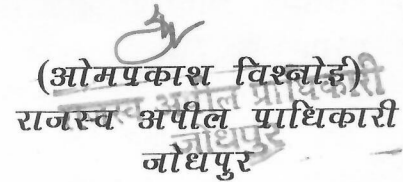 (ओमप्रकाश विश्नोई)
राजस्व अपील प्राधिकारी
राजस्व अपील पाधिकारी
जोधपुर
जोधपुर